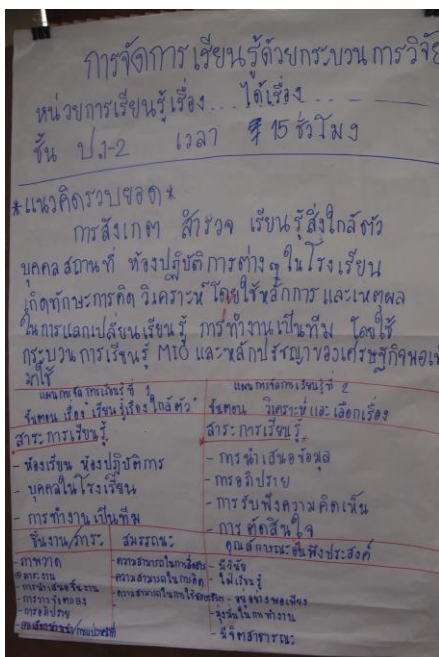 การจัดการเรียนรู้ด้วยกระบวนการวิจัย
หน่วยการเรียนรู้เรื่อง....ได้เรื่อง....
ชั้น ป.1-2 เวลา 15 ชั่วโมง
*แนวคิดรวบยอด*
การสังเกต สำรวจ เรียนรู้สิ่งใกล้ตัว
บุคคล สถานที่ ห้องปฏิบัติการต่างๆ ในโรงเรียน
เกิดทักษะการคิด วิเคราะห์ โดยใช้หลักการ และเหตุผล
ในการแลกเปลี่ยนเรียนรู้ การทำงานเป็นทีม โดยใช้
กระบวนการเรียนรู้ และหลักปรัชญาของเศรษฐกิจพอเพ
มาใช้
แผนการจัดการเรียนรู้ที่ 1
ขั้นตอน เรื่อง "เรียนรู้เรื่องใกล้ตัว"
สาระการเรียนรู้
- ห้องเรียน ห้องปฏิบัติการ
- บุคคลในโรงเรียน
- การทำงานเป็นทีม
แผนการจัดการเรียนรู้ที่ 2
ขั้นตอน วิเคราะห์และเลือกเรื่อง
สาระการเรียนรู้
- การนำเสนอข้อมูล
- การอภิปราย
- การรับฟังความคิดเห็น
- การตัดสินใจ
ชิ้นงาน/ภาระ
- ภาพวาด
ภาระงาน
- การนำเสนอชิ้นงาน
- การอภิปราย
สมรรถนะ
- ความสามารถในการสื่อสาร
- ความสามารถในการคิด
- ความสามารถในการใช้
คุณลักษณะอันพึงประสงค์
- มีวินัย
- ใฝ่เรียนรู้
- อยู่อย่างพอเพียง
- มุ่งมั่นในการทำงาน
- มีจิตสาธารณะ